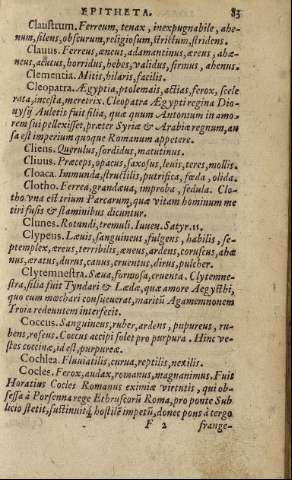 EPITHETA. 83
Claustrum. Ferreum, tenax, inexpugnabile, ahe-
num, silens, obscurum, religiosum, strictum, stridens.
Clauus. Ferreus, æneus, adamantinus, æreus, ahæ-
neus, acutus, horridus, hebes, validus, firmus, ahenus.
Clementia. Mitis, hilaris, facilis.
Cleopatra. Ægyptia, ptolemais, actias, ferox, scele
rata, incesta, meretrix. Cleopatra Ægypti regina Dio-
nysij Auletis fuit filia, quæ quum Antonium in amo-
rem sui pellexisset, præter Syriæ & Arabiæ regnum, au
sa est imperium quoque Romanum appetere.
Cliens. Querulus, sordidus, matutinus.
Cliuus. Præceps, opacus, saxosus, leuis, teres, mollis.
Cloaca. Immunda, structilis, putrifica, fœda, olida.
Clotho. Ferrea, grandæua, improba, sedula. Clo-
tho vna est trium Parcarum, quæ vitam hominum me
tiri fusis & staminibus dicuntur.
Clunes. Rotundi, tremuli. Iuuen. Satyr. 11.
Clypeus. Læuis, sanguineus, fulgens, habilis, se-
ptemplex, æreus, terribilis, æneus, ardens, coruscus, ahæ
nus, æratus, durus, cauus, cruentus, dirus, pulcher.
Clytemnestra. Sæua, formosa, cruenta. Clytemne-
stra, filia fuit Tyndari & Ledæ, quæ amore Aegysthi,
quo cum mœchari consueuerat, maritũ Agamemnonem
Troia redeuntem interfecit.
Coccus. Sanguineus, ruber, ardens, pupureus, ru-
bens, roseus. Coccus accipi solet pro purpura. Hinc ve-
stes coccineæ, id est, purpureæ.
Cochlea. Fluuiatilis, curua, reptilis, nexilis.
Cocles. Ferox, audax, romanus, magnanimus. Fuit
Horatius Cocles Romanus eximiæ virtutis, qui ob-
sessa à Porsenna rege Ethruscorũ Roma, pro ponte Sub
licio stetit, sustinuitq́; hostilẽ impetũ, donec pons à tergo
F 2 frange-